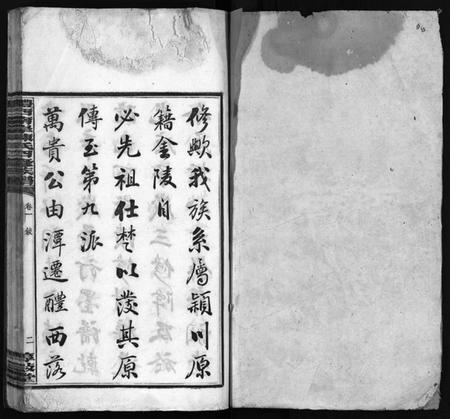 修歟我族系屬潁川原
籍金陵自
必先祖仕楚以發其原
傳至第九派
萬貴公由潭遷醴西落
卷一 敘
二